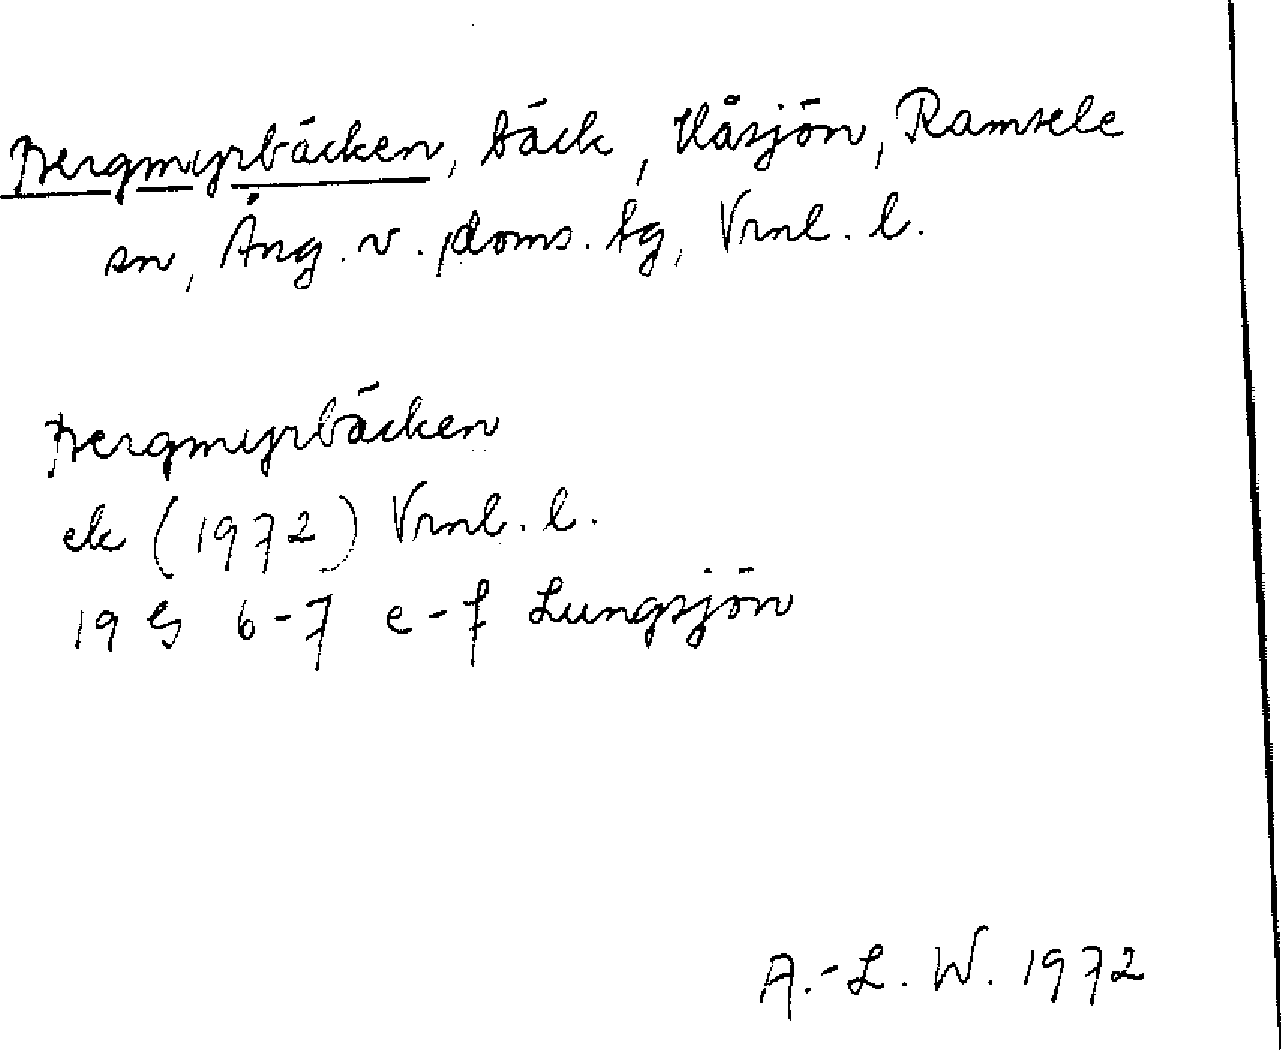 Bergmyrbäcken, bäck, Våsjön, Ramsele
sn, Ång. v. doms. bg, Vrnl. l.
Bergmyrbäcken
ek (1972) Vrnl. l.
19 G 6-7 e-f Lungsjön
A.-L. W. 1972